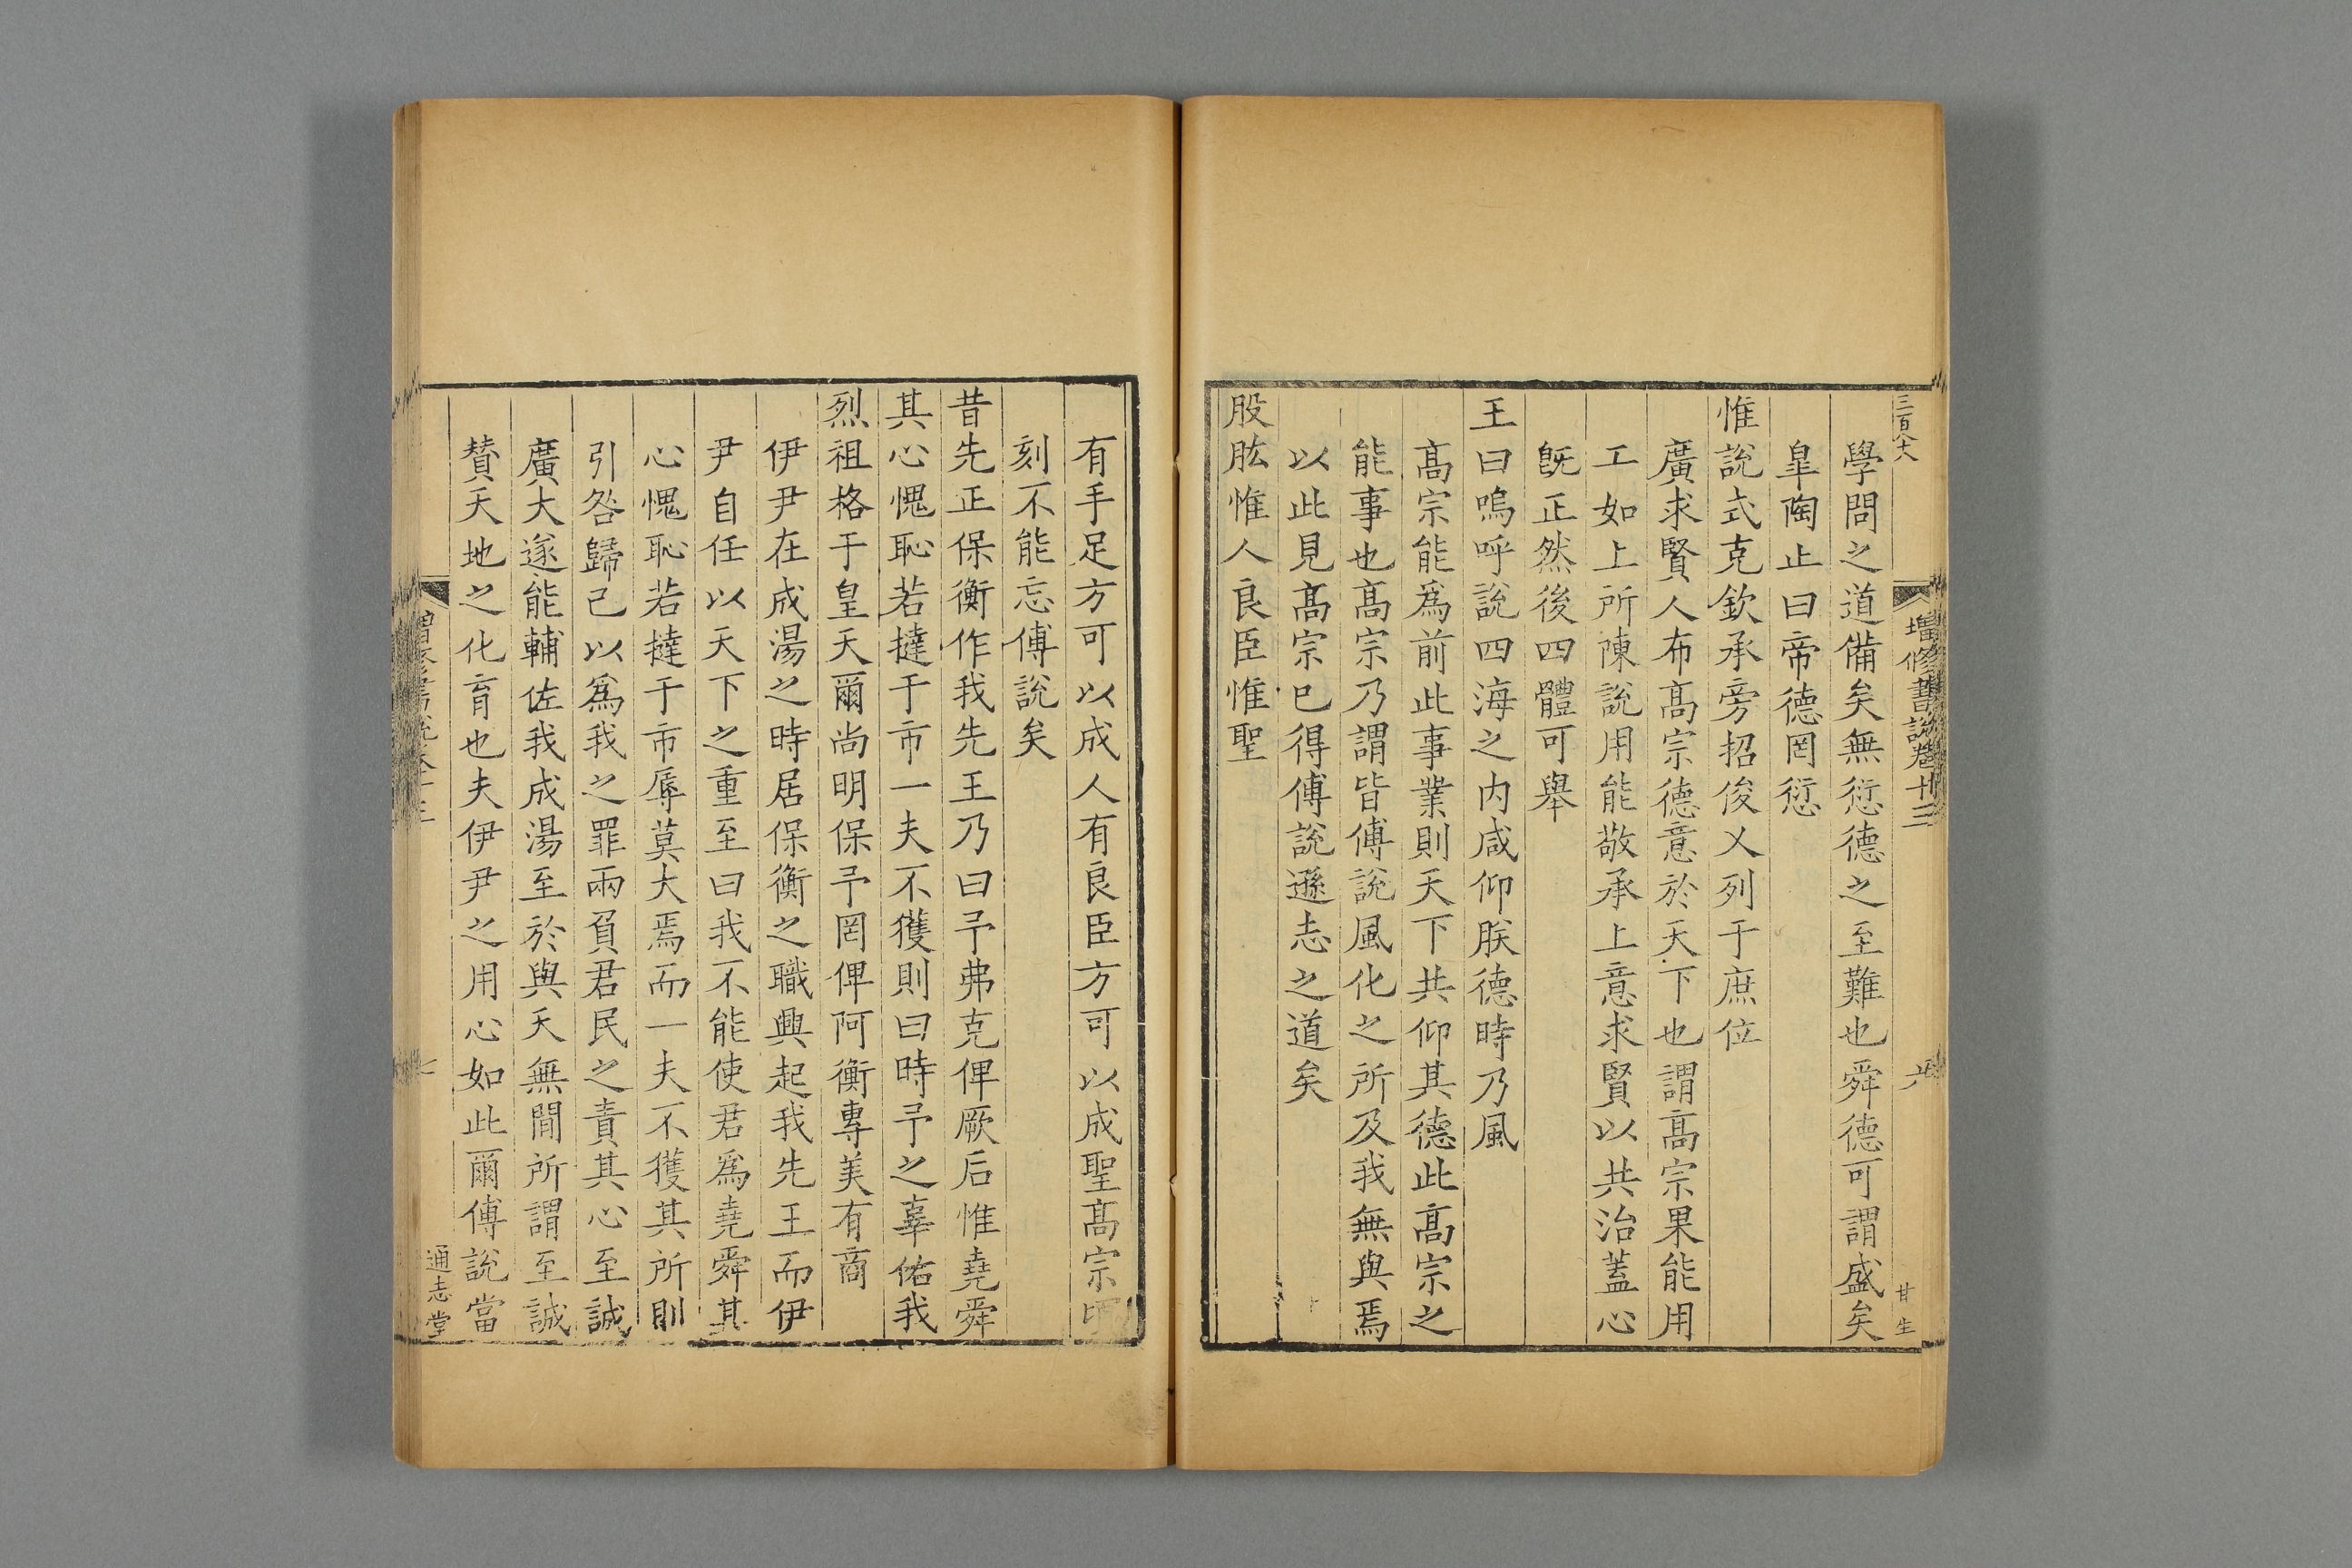 三百六
增修書說卷十三
六
甘生
學問之道備矣無愆德之至難也舜德可謂盛矣
臯陶止曰帝德罔愆
惟說式克欽承旁招俊乂列于庶位
廣求賢人布髙宗德意於天下也謂髙宗果能用
工如上所陳說用能敬承上意求賢以共治蓋心
旣正然後四體可舉
王曰嗚呼說四海之内咸仰朕德時乃風
髙宗能爲前此事業則天下共仰其德此髙宗之
能事也髙宗乃謂皆傅說風化之所及我無與焉
以此見髙宗已得傅說遜志之道矣
股肱惟人良臣惟聖
有手足方可以成人有良臣方可以成聖髙宗
刻不能忘傅說矣
昔先正保衡作我先王乃曰予弗克俾厥后惟堯舜
其心愧恥若撻于市一夫不獲則曰時予之辜佑我
烈祖格于皇天爾尚明保予罔俾阿衡專美有商
伊尹在成湯之時居保衡之職興起我先王而伊
尹自任以天下之重至曰我不能使君爲堯舜其
心愧恥若撻于市辱莫大焉而一夫不獲其所則
引咎歸己以爲我之罪兩負君民之責其心至誠
廣大遂能輔佐我成湯至於與天無間所謂至誠
賛天地之化育也夫伊尹之用心如此爾傅說當
七
通志堂